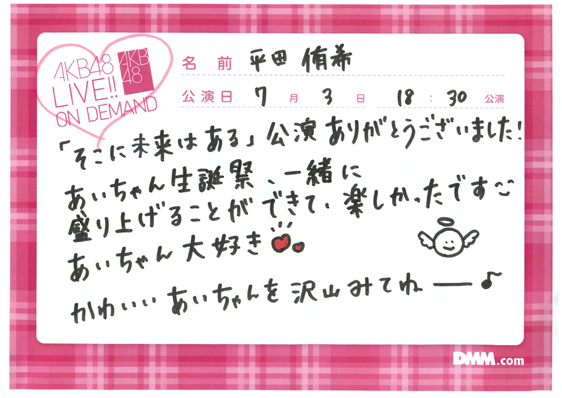 AKB48
LIVE!!
ON DEMAND
AKB
48
名前 平田 侑希
公演日 7月3日 18:30公演
「そこに未来はある」公演ありがとうございました!
あいちゃん生誕祭、一緒に
盛り上げることができて、楽しかったです
あいちゃん大好き
かわいいあいちゃんを沢山みてねー♪
DMM.com